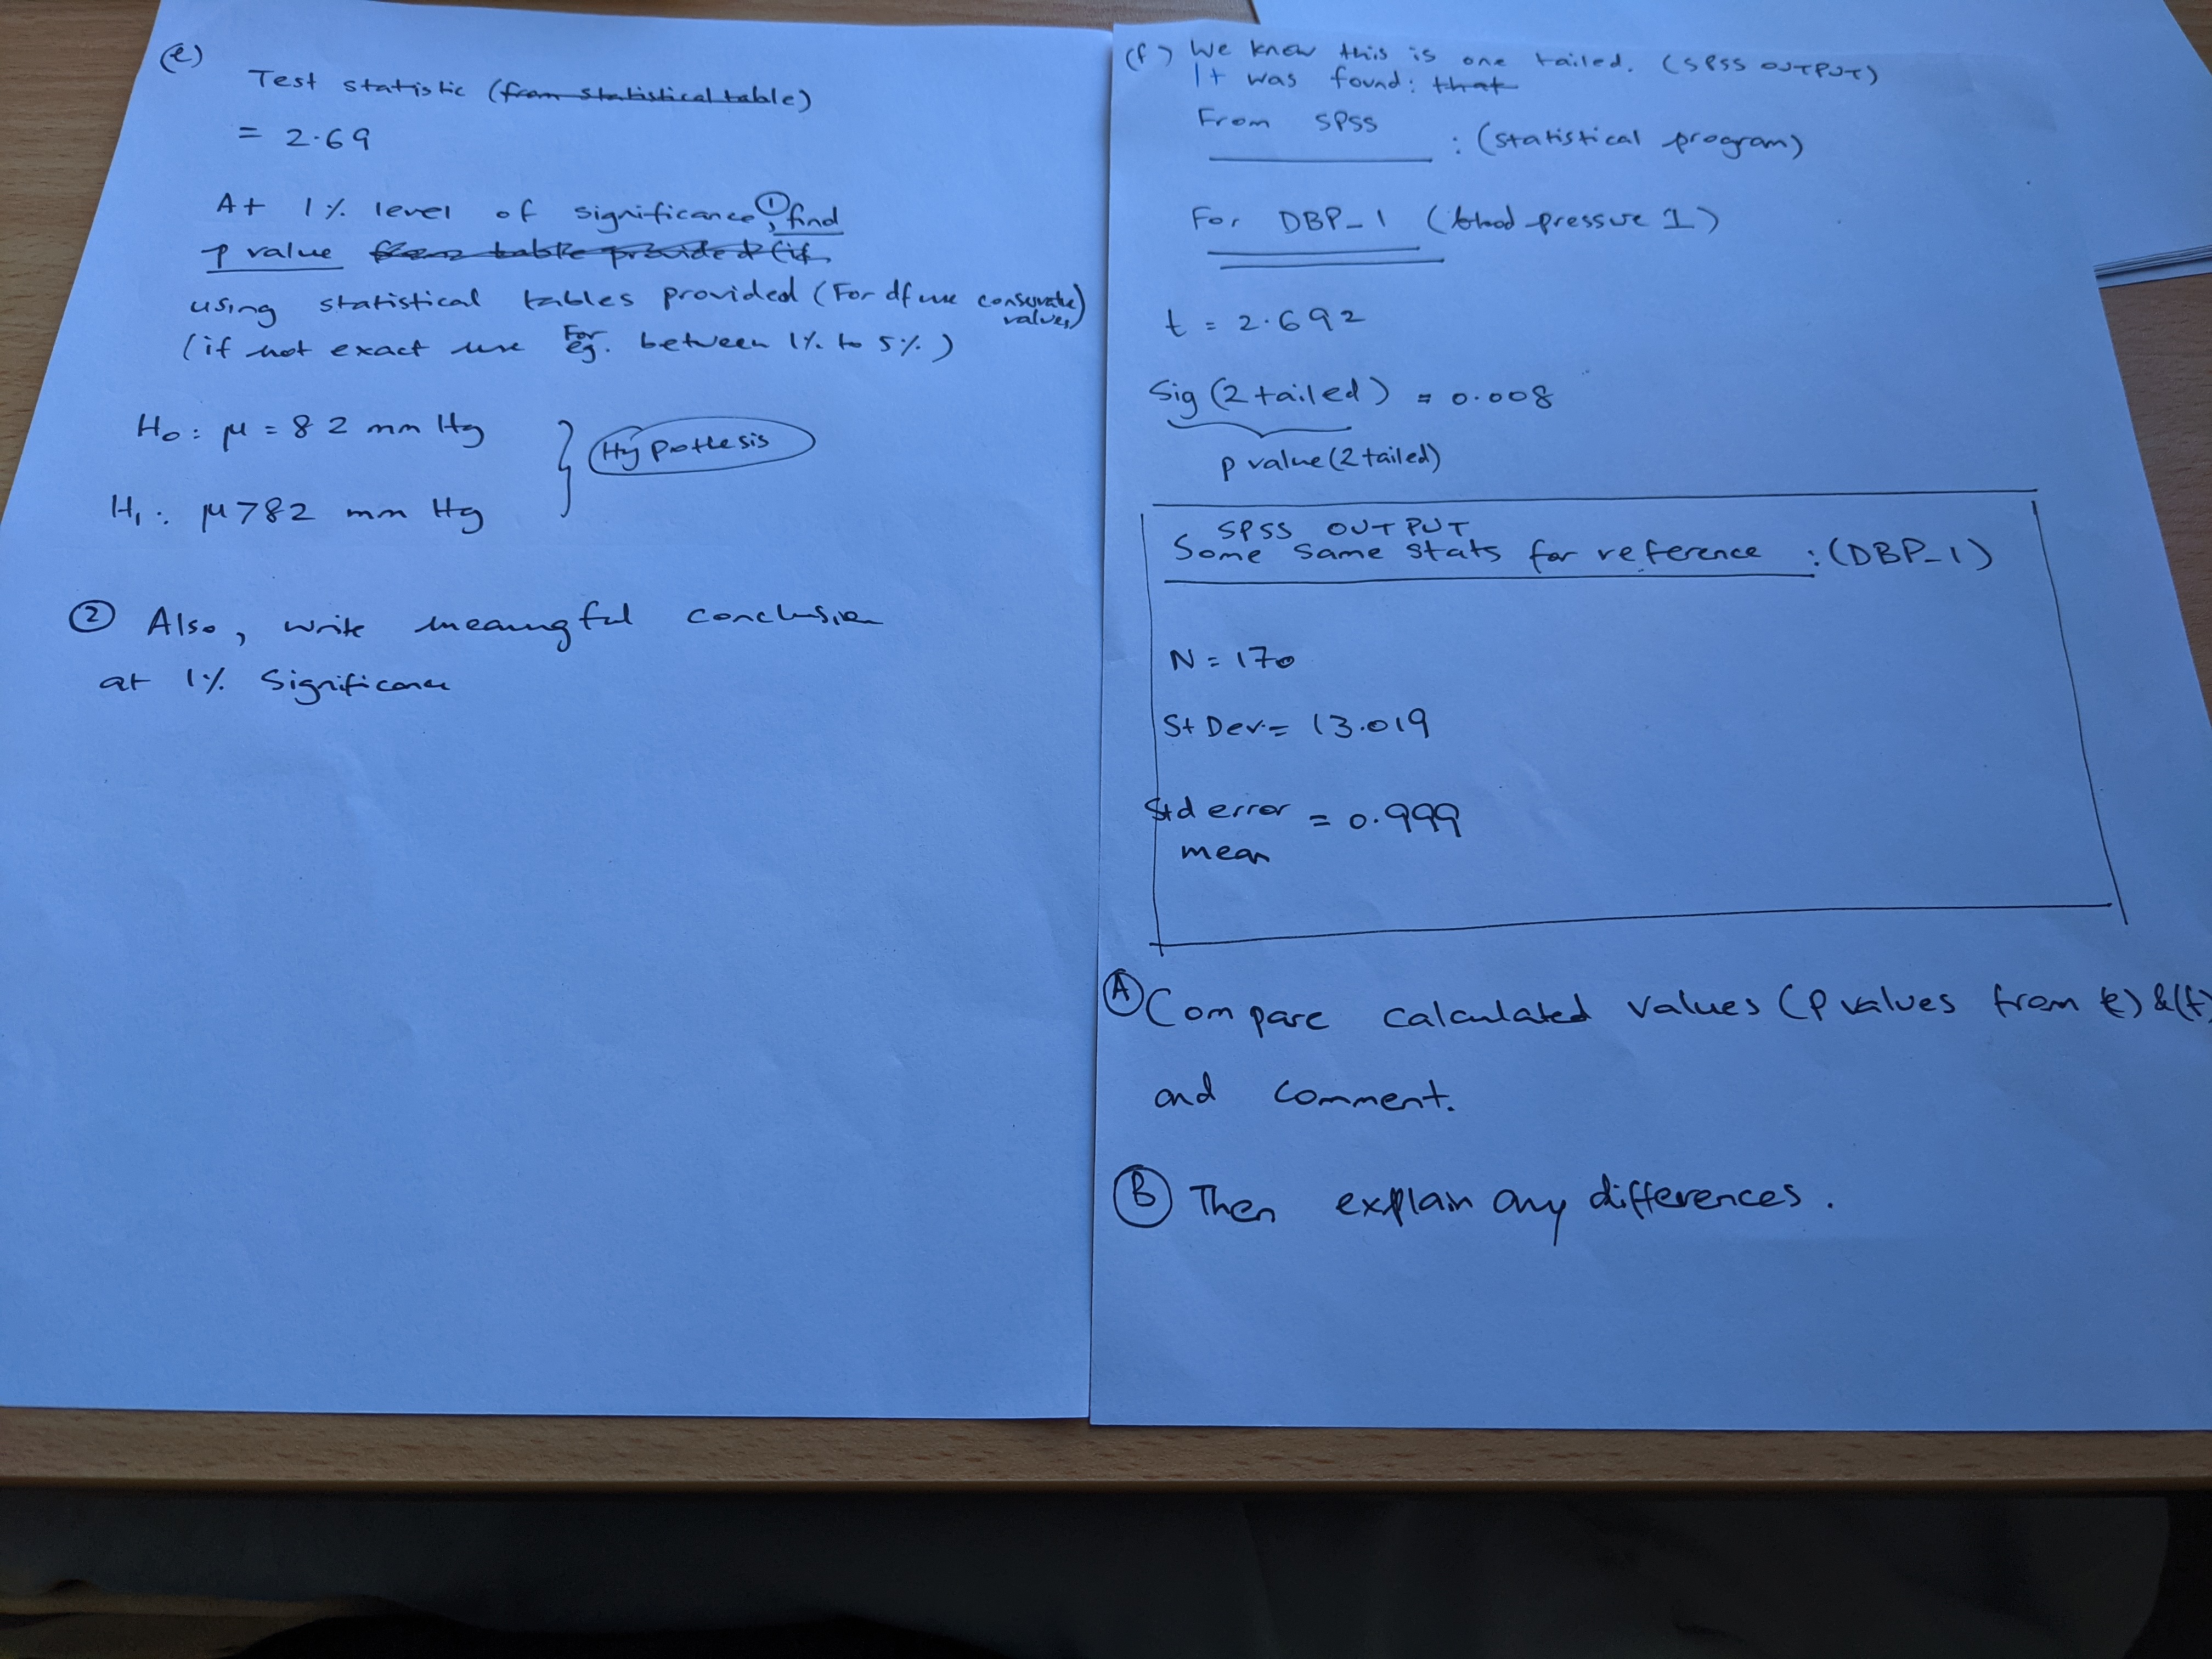 (e)
Test statistic (from statistical table)
= 2.69
At 1% level of significance, ① find
p value from table provided (if
using statistical tables provided (For df use conservative values)
(if not exact use For eg. between 1% to 5%)
H₀: μ = 82 mm Hg
Hypothesis
H₁: μ > 82 mm Hg
② Also, write meaningful conclusion
at 1% Significance
(f) We know this is one tailed. (SPSS OUTPUT)
It was found: that
From SPSS : (statistical program)
For DBP_1 (blood pressure 1)
t = 2.692
Sig (2 tailed) = 0.008
p value (2 tailed)
SPSS OUTPUT
Some same stats for reference : (DBP_1)
N = 170
St Dev. = 13.019
Std error mean = 0.999
Ⓐ Compare calculated values (p values from e) & (f)
and comment.
Ⓑ Then explain any differences.